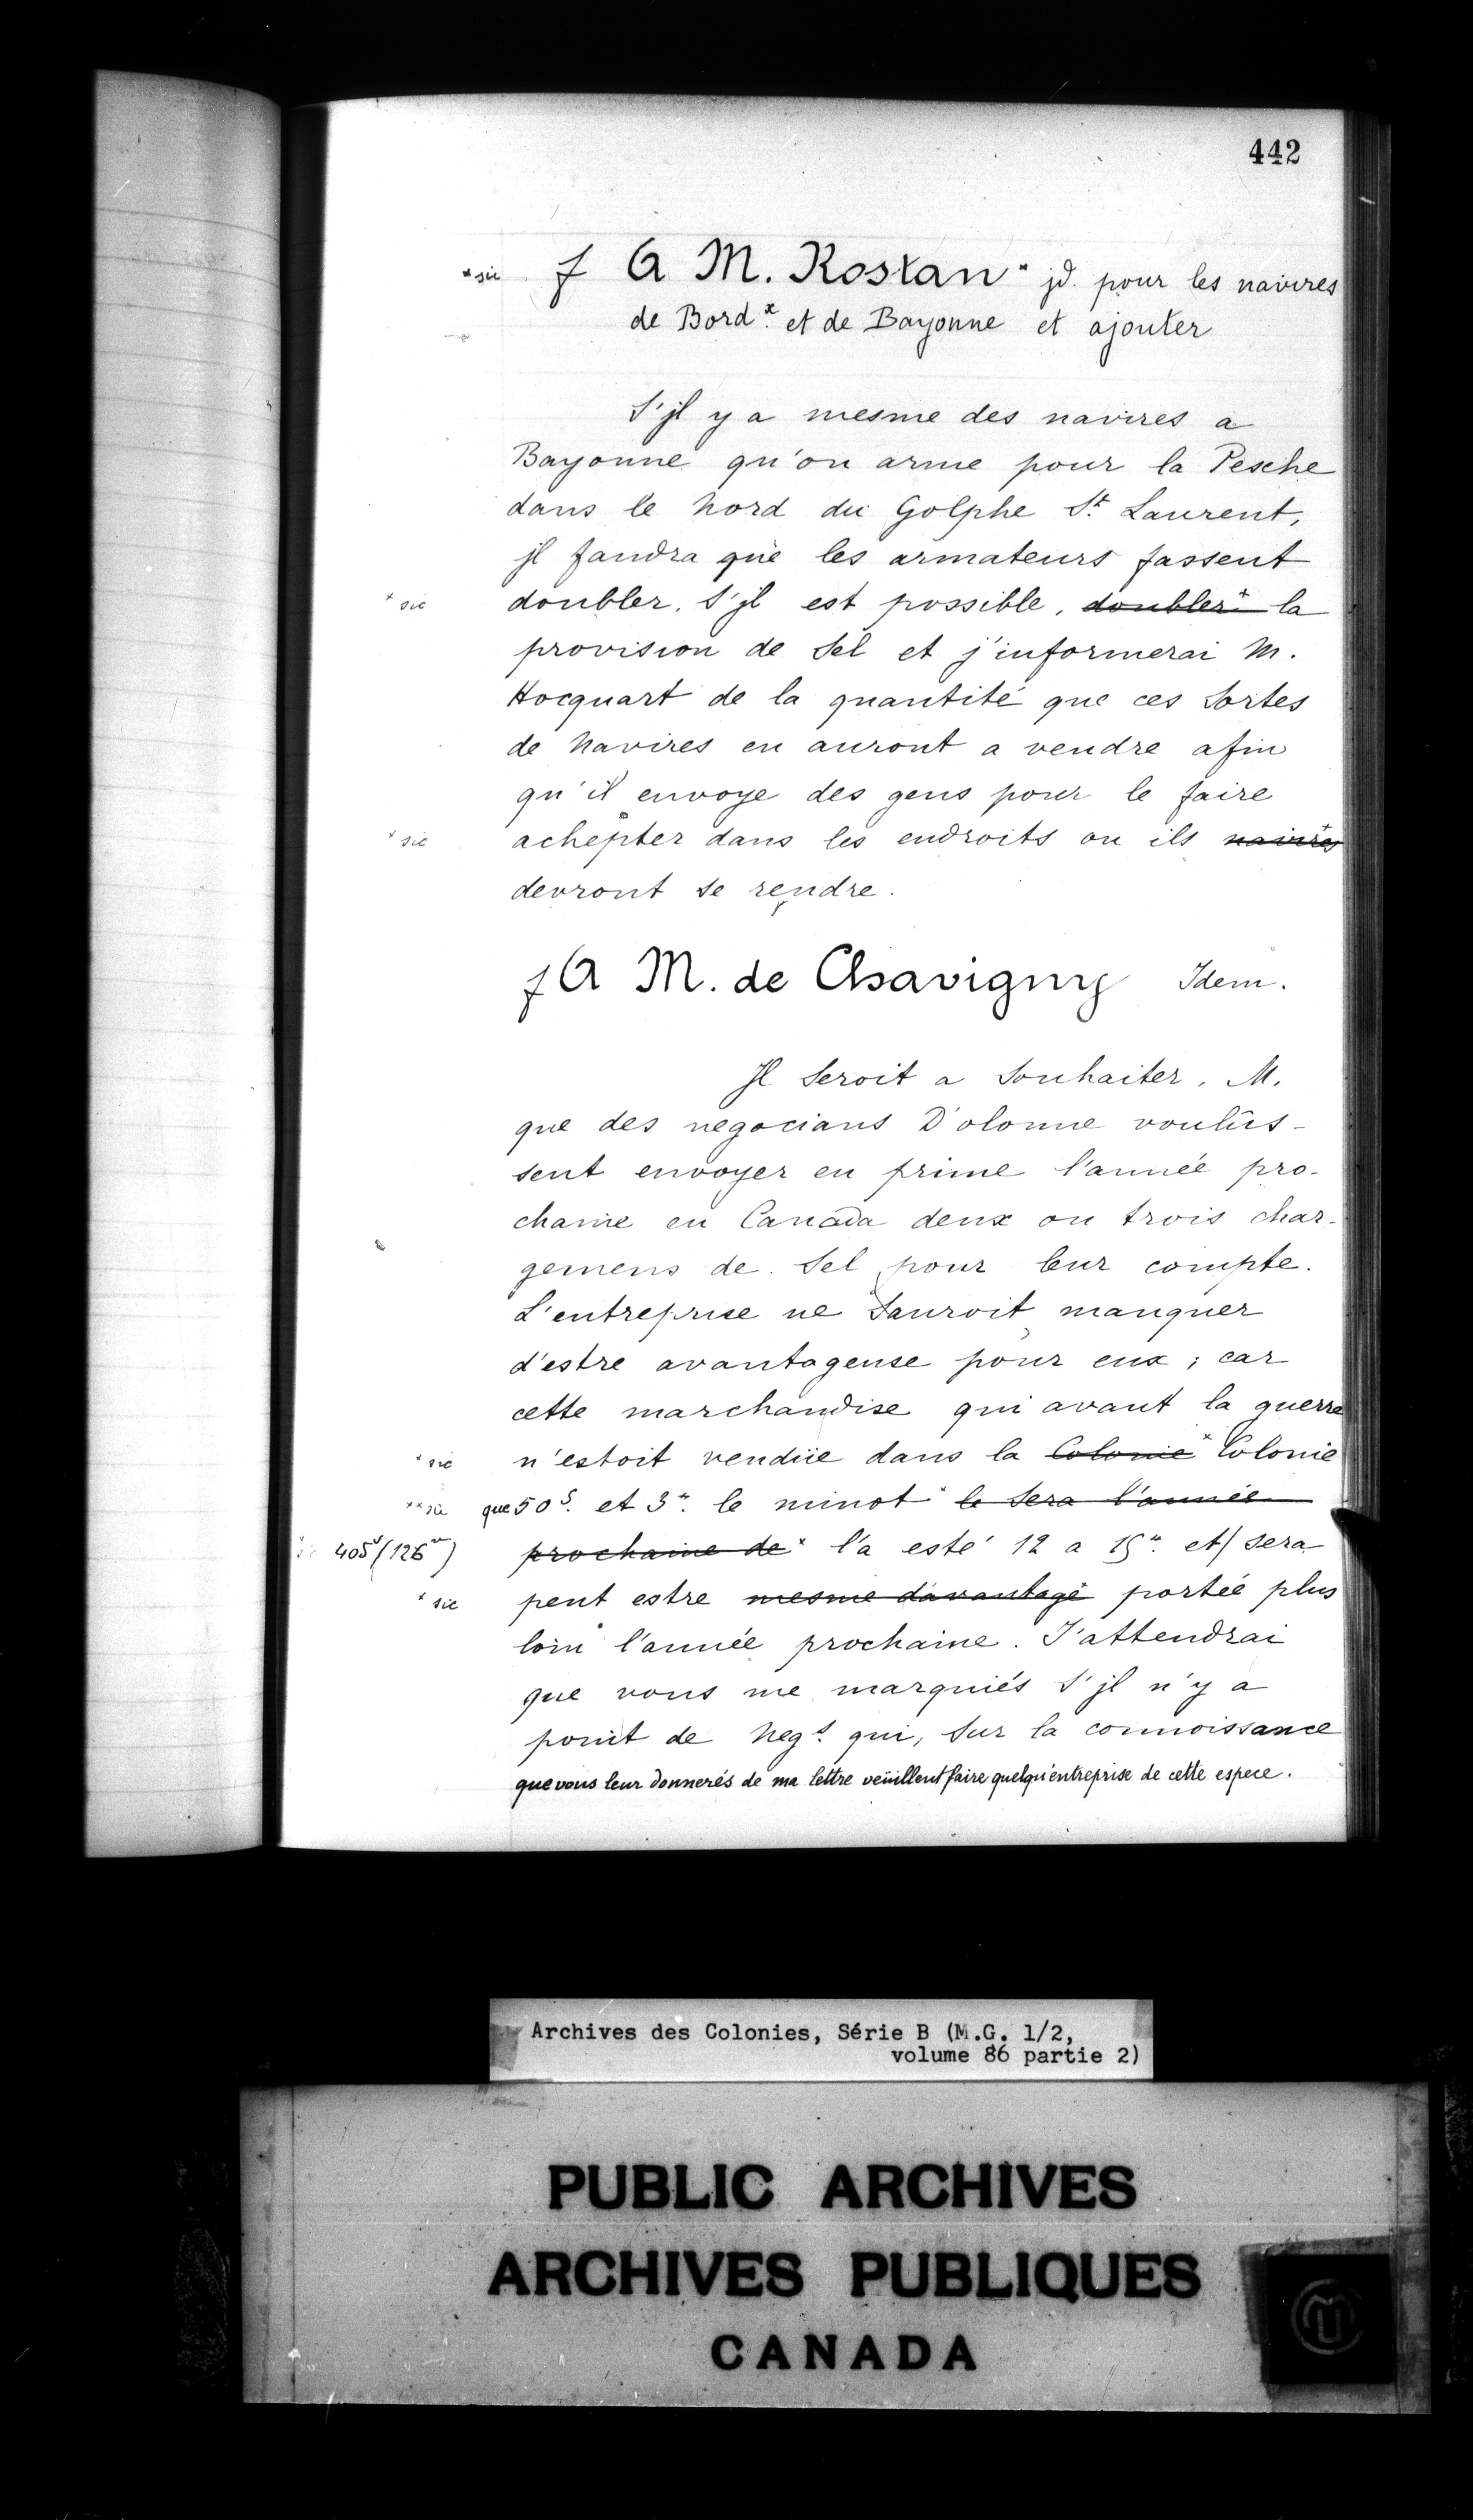 442
* sic f A M. Rostan * jd. pour les navires
de Bord.x et de Bayonne et ajouter
S'jl y a mesme des navires a
Bayonne qu'on arme pour la Pesche
dans le Nord du Golphe St. Laurent,
jl faudra que les armateurs fassent
* sic doubler, S'jl est possible, doubler * la
provision de Sel et j'informerai M.
Hocquart de la quantité que ces Sortes
de Navires en auront a vendre afin
qu'il envoye des gens pour le faire
* sic achepter dans les endroits ou ils navires *
devront se rendre.
f A M. de Chavigny Idem.
Jl Seroit a Souhaiter, M.
que des negocians D'olonne voulûs-
sent envoyer en prime l'année pro-
chaine en Canada deux ou trois char-
gemens de Sel pour leur compte.
L'entreprise ne Sauroit manquer
d'estre avantageuse pour eux; car
cette marchandise qui avant la guerre
* sic n'estoit vendüe dans la Colonie * Colonie
** sic que 50 s. et 3 ". le minot * le Sera l'année
405 v (126 v) prochaine de * l'a esté 12 a 15 ". et/ sera
* sic peut estre mesme davantage * portée plus
loin l'année prochaine. J'attendrai
que vous me marquiés S'jl n'y a
point de Neg.s qui, Sur la connoissance
que vous leur donnerés de ma lettre veüillent faire quelqu'entreprise de cette espece.
Archives des Colonies, Série B (M.G. 1/2,
volume 86 partie 2)
PUBLIC ARCHIVES
ARCHIVES PUBLIQUES
CANADA